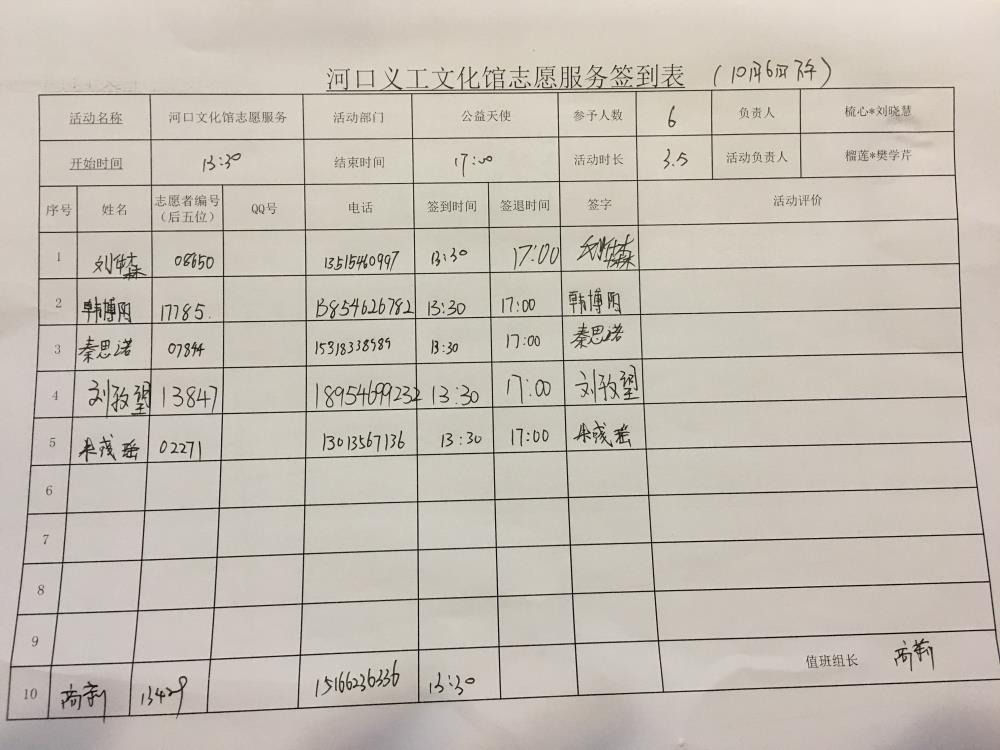 河口义工文化馆志愿服务签到表 (10月6日下午)
活动名称 河口文化馆志愿服务 活动部门 公益天使 参予人数 6 负责人 梳心*刘晓慧
开始时间 13:30 结束时间 17:00 活动时长 3.5 活动负责人 榴莲*樊学芹
序号 姓名 志愿者编号(后五位) QQ号 电话 签到时间 签退时间 签字 活动评价
1 刘 08650 13515460997 13:30 17:00 刘
2 韩博阳 17785. 13854626782 13:30 17:00 韩博阳
3 秦思诺 07894 15318338989 13:30 17:00 秦思诺
4 刘孜望 13847 18954699232 13:30 17:00 刘孜望
5 瑶 02271 13013567136 13:30 17:00 瑶
6
7
8
9
10 商新 13429 15166236336 13:30 值班组长 商新